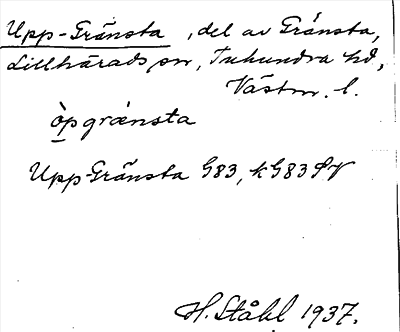 Upp-Gränsta, del av Gränsta,
Lillhärads sn, Tuhundra hd,
Västm. l.
òpgrænsta
Upp-Gränsta G83, kG83 SV
H. Ståhl 1937.